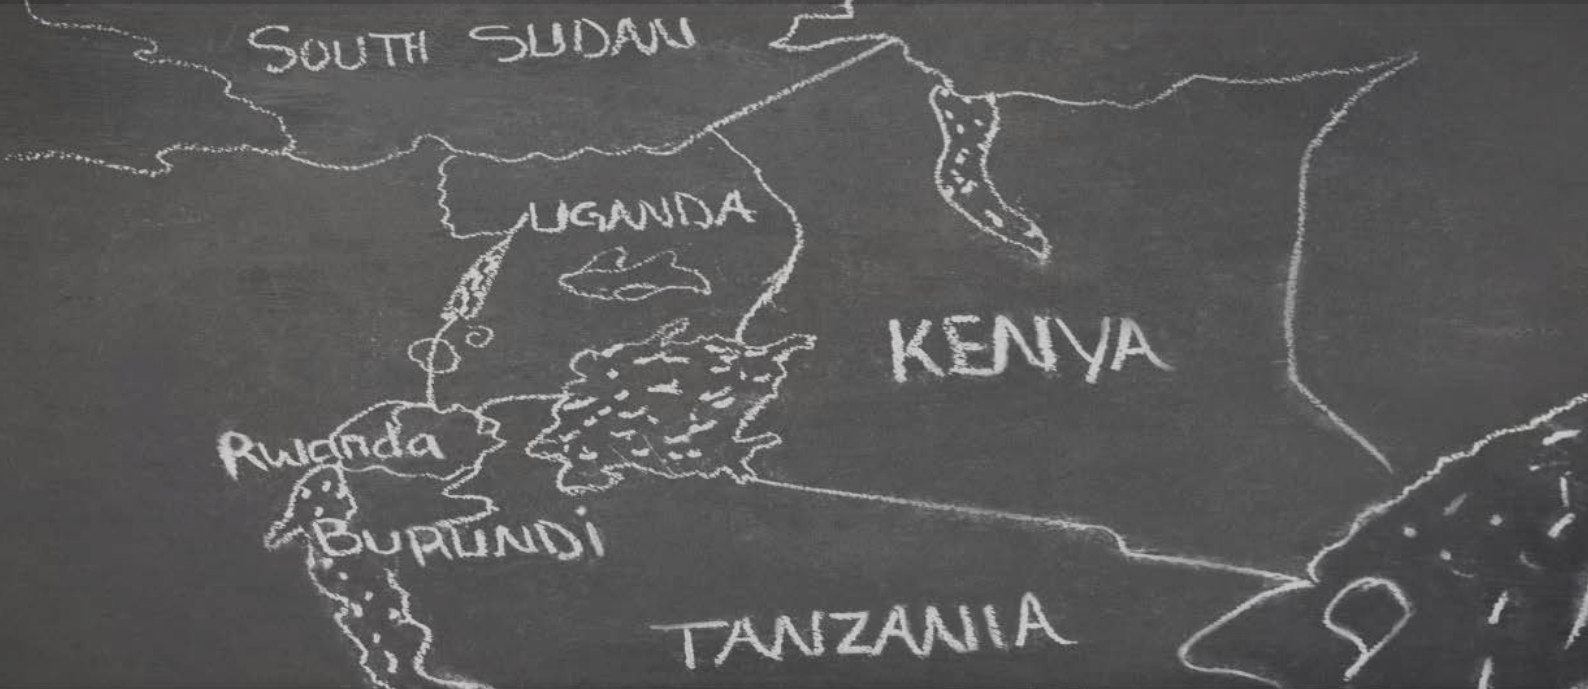 SOUTH SUDAN
UGANDA
KENYA
Rwanda
BURUNDi
TANZANIA